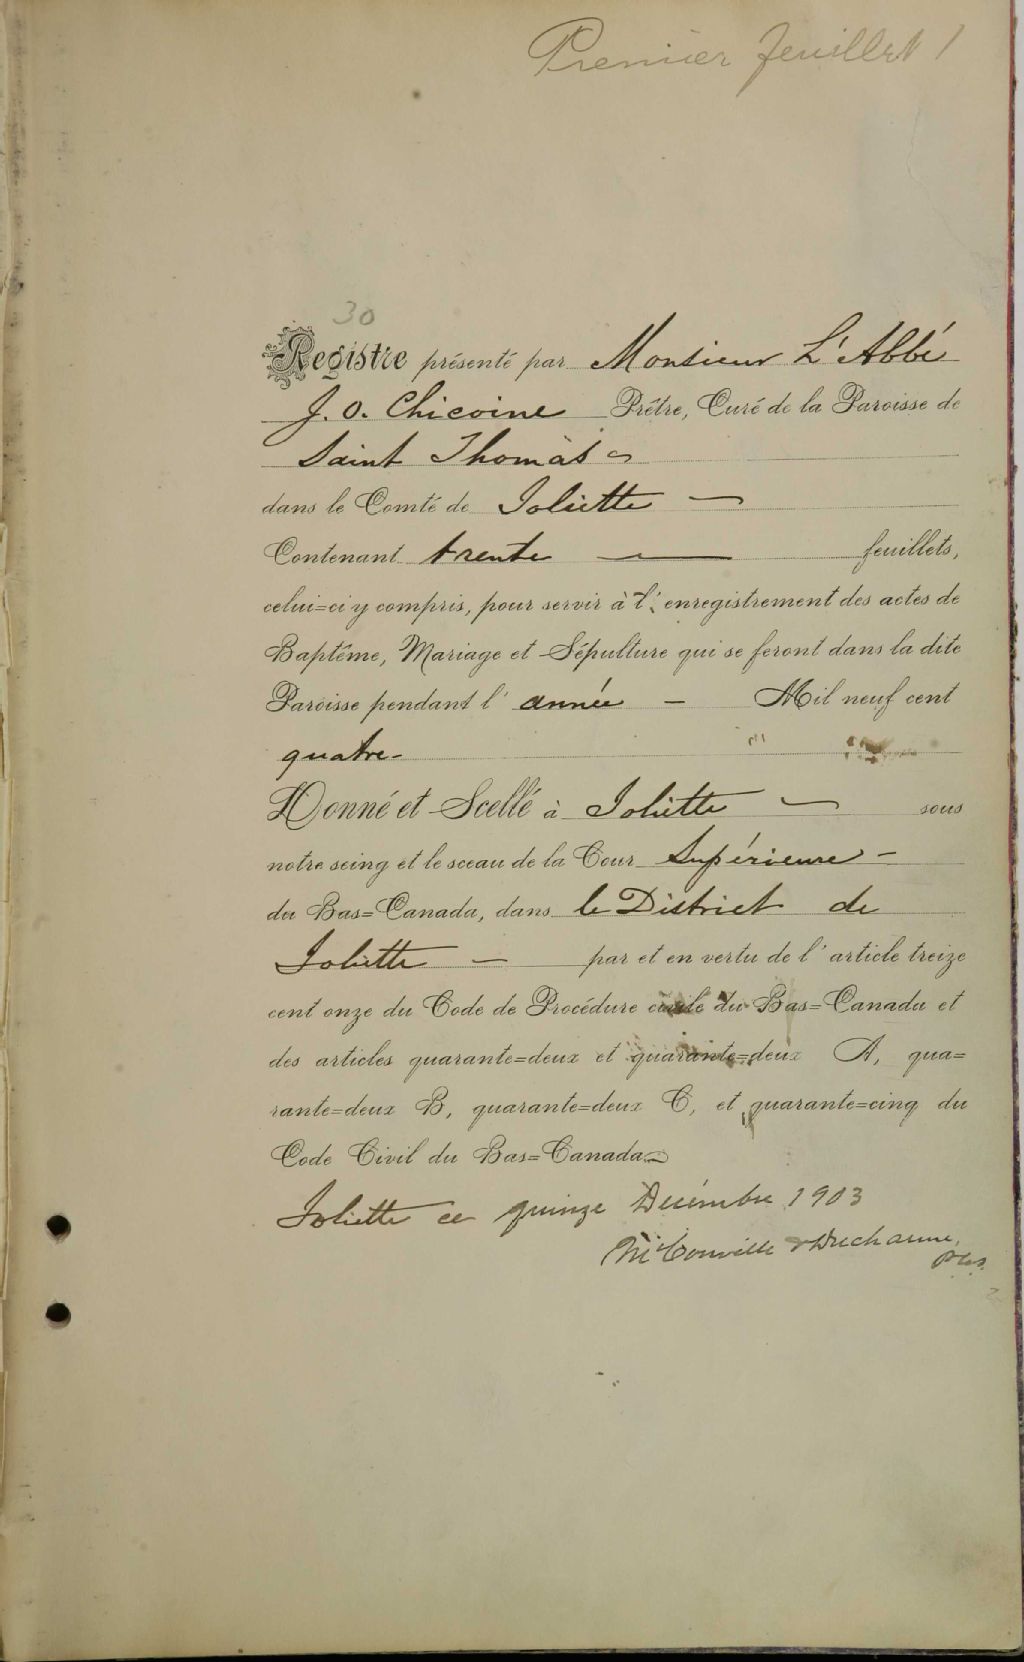 Premier feuillet 1
30
Registre présenté par Monsieur L'Abbé
J. O. Chicoine Prêtre, Curé de la Paroisse de
Saint Thomas
dans le Comté de Joliette —
Contenant trente — feuillets,
celui=ci y compris, pour servir à l'enregistrement des actes de
Baptême, Mariage et Sépulture qui se feront dans la dite
Paroisse pendant l'année — Mil neuf cent
quatre-
Donné et Scellé à Joliette — sous
notre seing et le sceau de la Cour Supérieure —
du Bas=Canada, dans le District de
Joliette — par et en vertu de l'article treize
cent onze du Code de Procédure civile du Bas=Canada et
des articles quarante=deux et quarante=deux A, qua=
rante=deux B, quarante=deux C, et quarante=cinq du
Code Civil du Bas=Canada
Joliette ce quinze Décembre 1903
McConville & Ducharme,